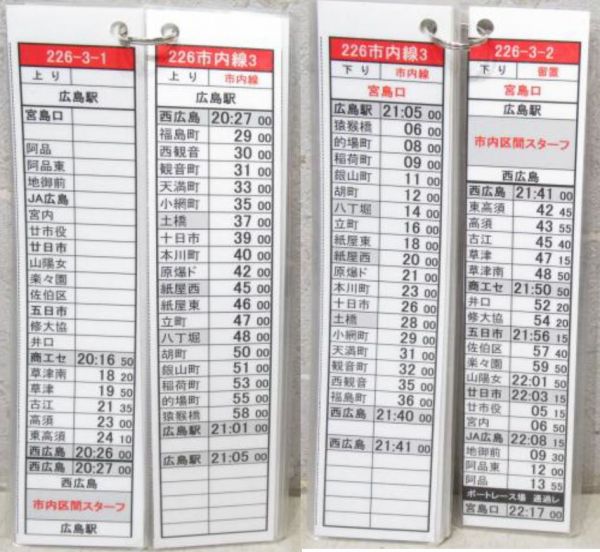 226-3-1
上り
広島駅
宮島口
阿品
阿品東
地御前
JA広島
宮内
廿市役
廿日市
山陽女
楽々園
佐伯区
五日市
修大協
井口
商工セ 20:16 50
草津南 18 20
草津 19 50
古江 21 35
高須 23 00
東高須 24 10
西広島 20:26 00
西広島 20:27 00
西広島
市内区間スターフ
広島駅
226市内線3
上り 市内線
広島駅
西広島 20:27 00
福島町 29 00
西観音 30 00
観音町 31 00
天満町 33 00
小網町 35 00
土橋 37 00
十日市 39 00
本川町 40 00
原爆ド 42 00
紙屋西 45 00
紙屋東 46 00
立町 47 00
八丁堀 48 00
胡町 50 00
銀山町 51 00
稲荷町 53 00
的場町 55 00
猿猴橋 58 00
広島駅 21:01 00
広島駅 21:05 00
226市内線3
下り 市内線
宮島口
広島駅 21:05 00
猿猴橋 06 00
的場町 08 00
稲荷町 09 00
銀山町 11 00
胡町 12 00
八丁堀 14 00
立町 16 00
紙屋東 18 00
紙屋西 20 00
原爆ド 21 00
本川町 23 00
十日市 26 00
土橋 28 00
小網町 29 00
天満町 31 00
観音町 32 00
西観音 35 00
福島町 36 00
西広島 21:40 00
西広島 21:41 00
226-3-2
下り 留置
宮島口
市内区間スターフ
西広島
西広島 21:41 00
東高須 42 45
高須 43 55
古江 45 40
草津 47 15
草津南 48 50
商工セ 21:50 50
井口 52 20
修大協 54 20
五日市 21:56 15
佐伯区 57 40
楽々園 59 50
山陽女 22:01 50
廿日市 22:03 15
廿市役 05 15
宮内 06 50
JA広島 22:08 15
地御前 09 30
阿品東 12 00
阿品 13 55
ボートレース場 通過レ
宮島口 22:17 00